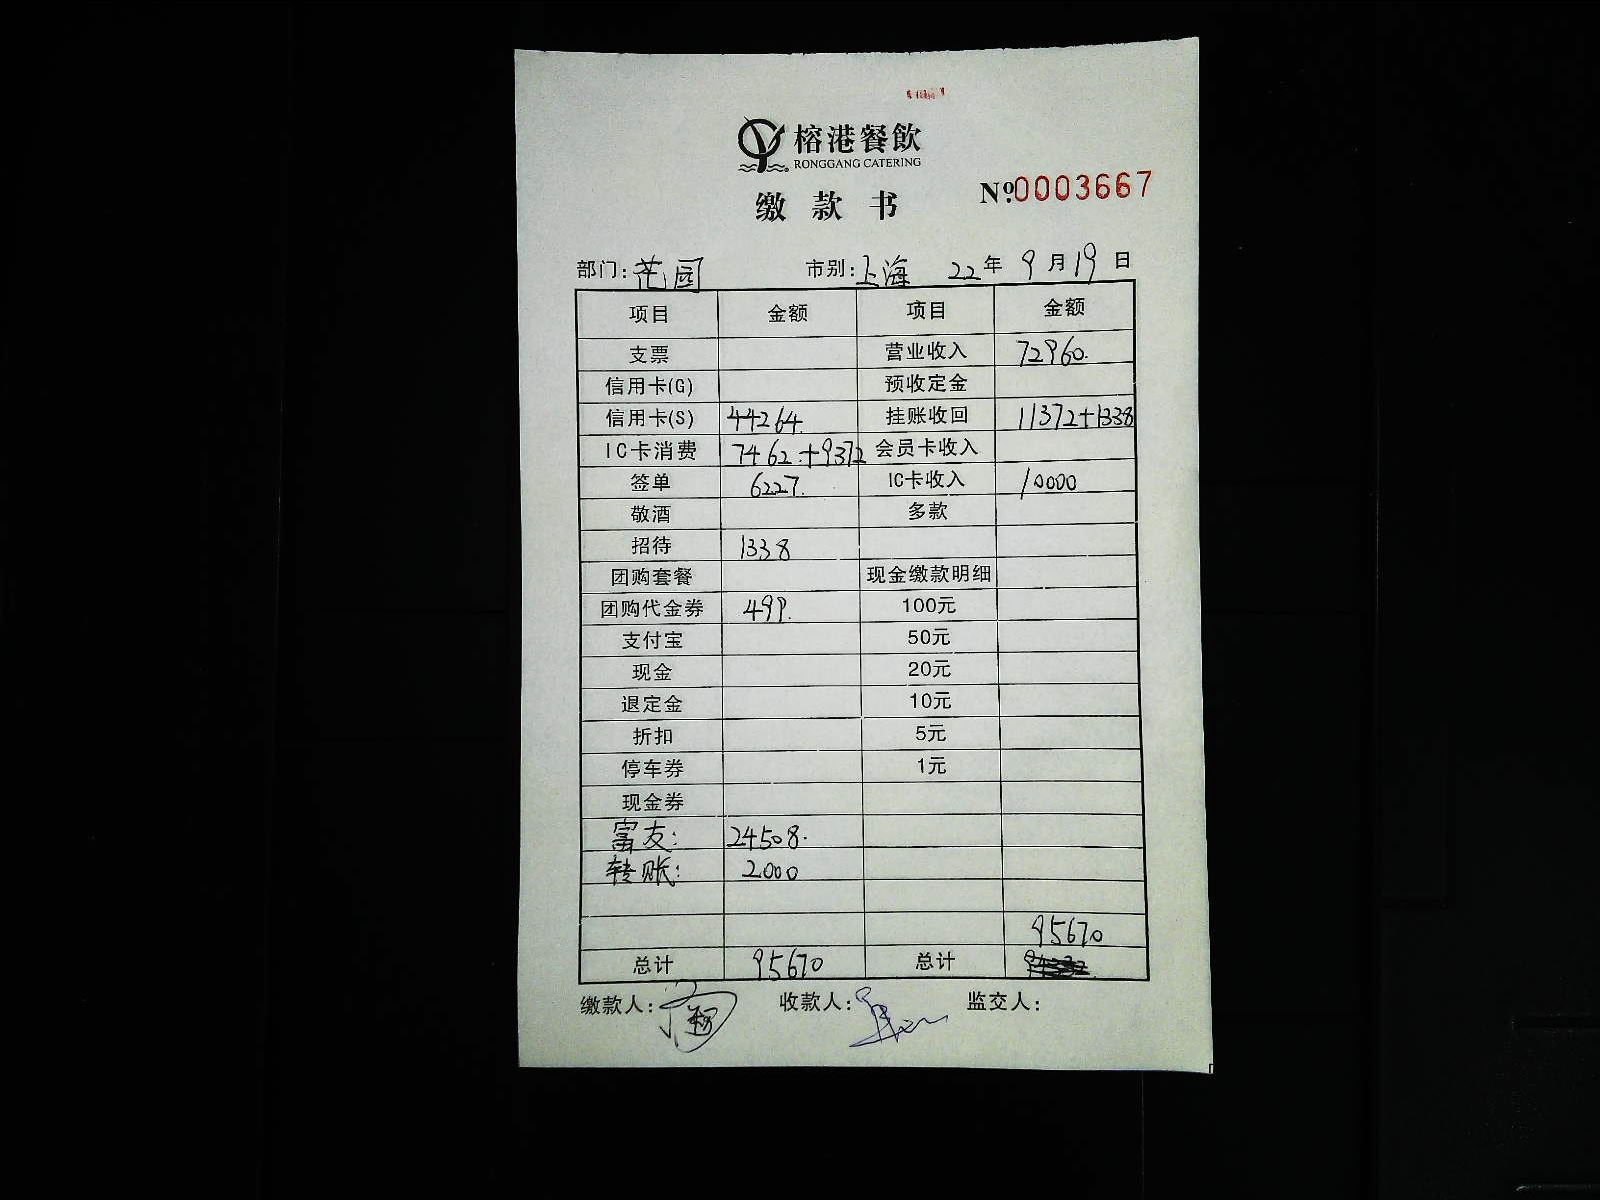 榕港餐飲
RONGGANG CATERING
缴款书
№.0003667
部门:花园 市别:上海 22年9月19日
项目 金额 项目 金额
支票 营业收入 72960.
信用卡(G) 预收定金
信用卡(S) 44264. 挂账收回 11372+1338
IC卡消费 7462.+9372 会员卡收入
签单 6227. IC卡收入 10000
敬酒 多款
招待 1338
团购套餐 现金缴款明细
团购代金券 499. 100元
支付宝 50元
现金 20元
退定金 10元
折扣 5元
停车券 1元
现金券
富友: 24508.
转账: 2000
95670
总计 95670 总计
缴款人: 收款人: 监交人: